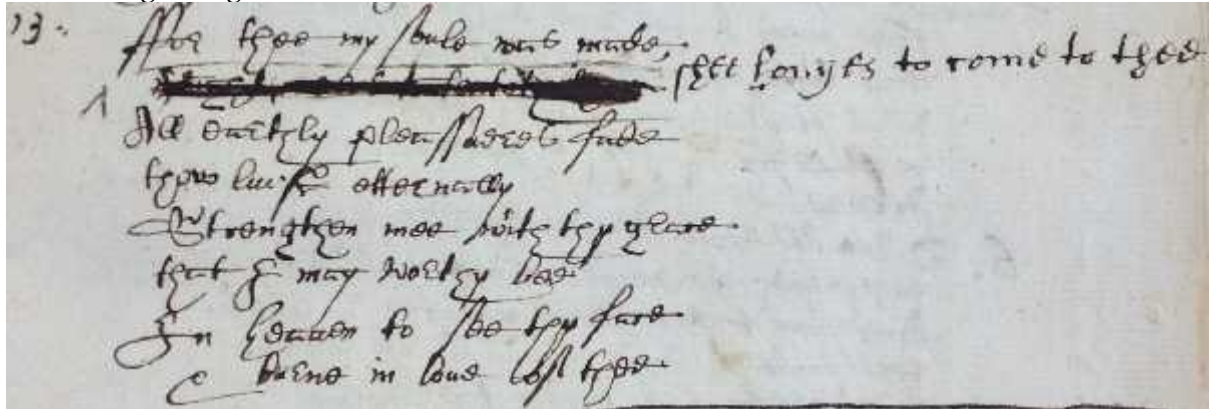 13. ffor thee my soule was made, shee longes to come to thee
All earthly pleassueres fade
thow liuest etternally
Strengthen mee with thy grace
that I may worthy bee
In heauen to see thy face
& burne in loue of thee